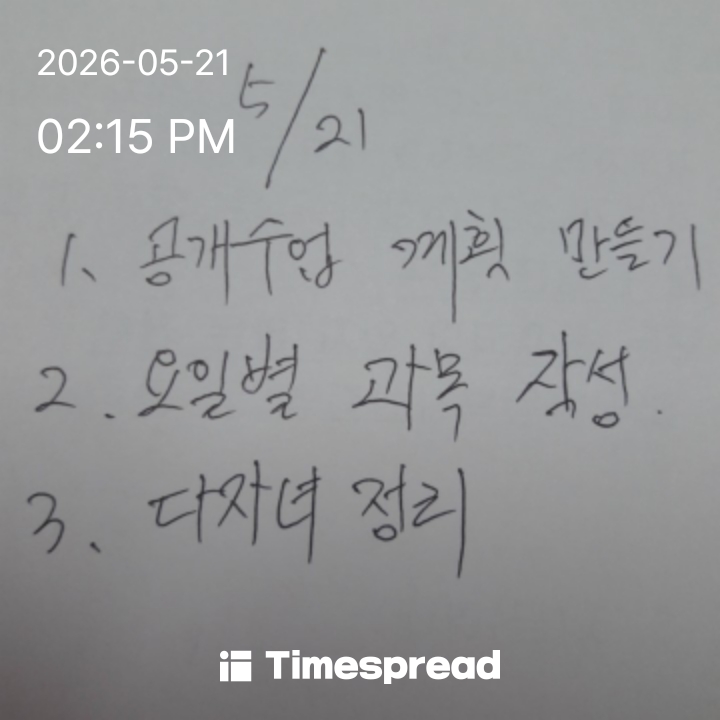 2026-05-21
02:15 PM
5/21
1. 공개수업 계획 만들기
2. 요일별 과목 작성.
3. 다자녀 정리
Timespread